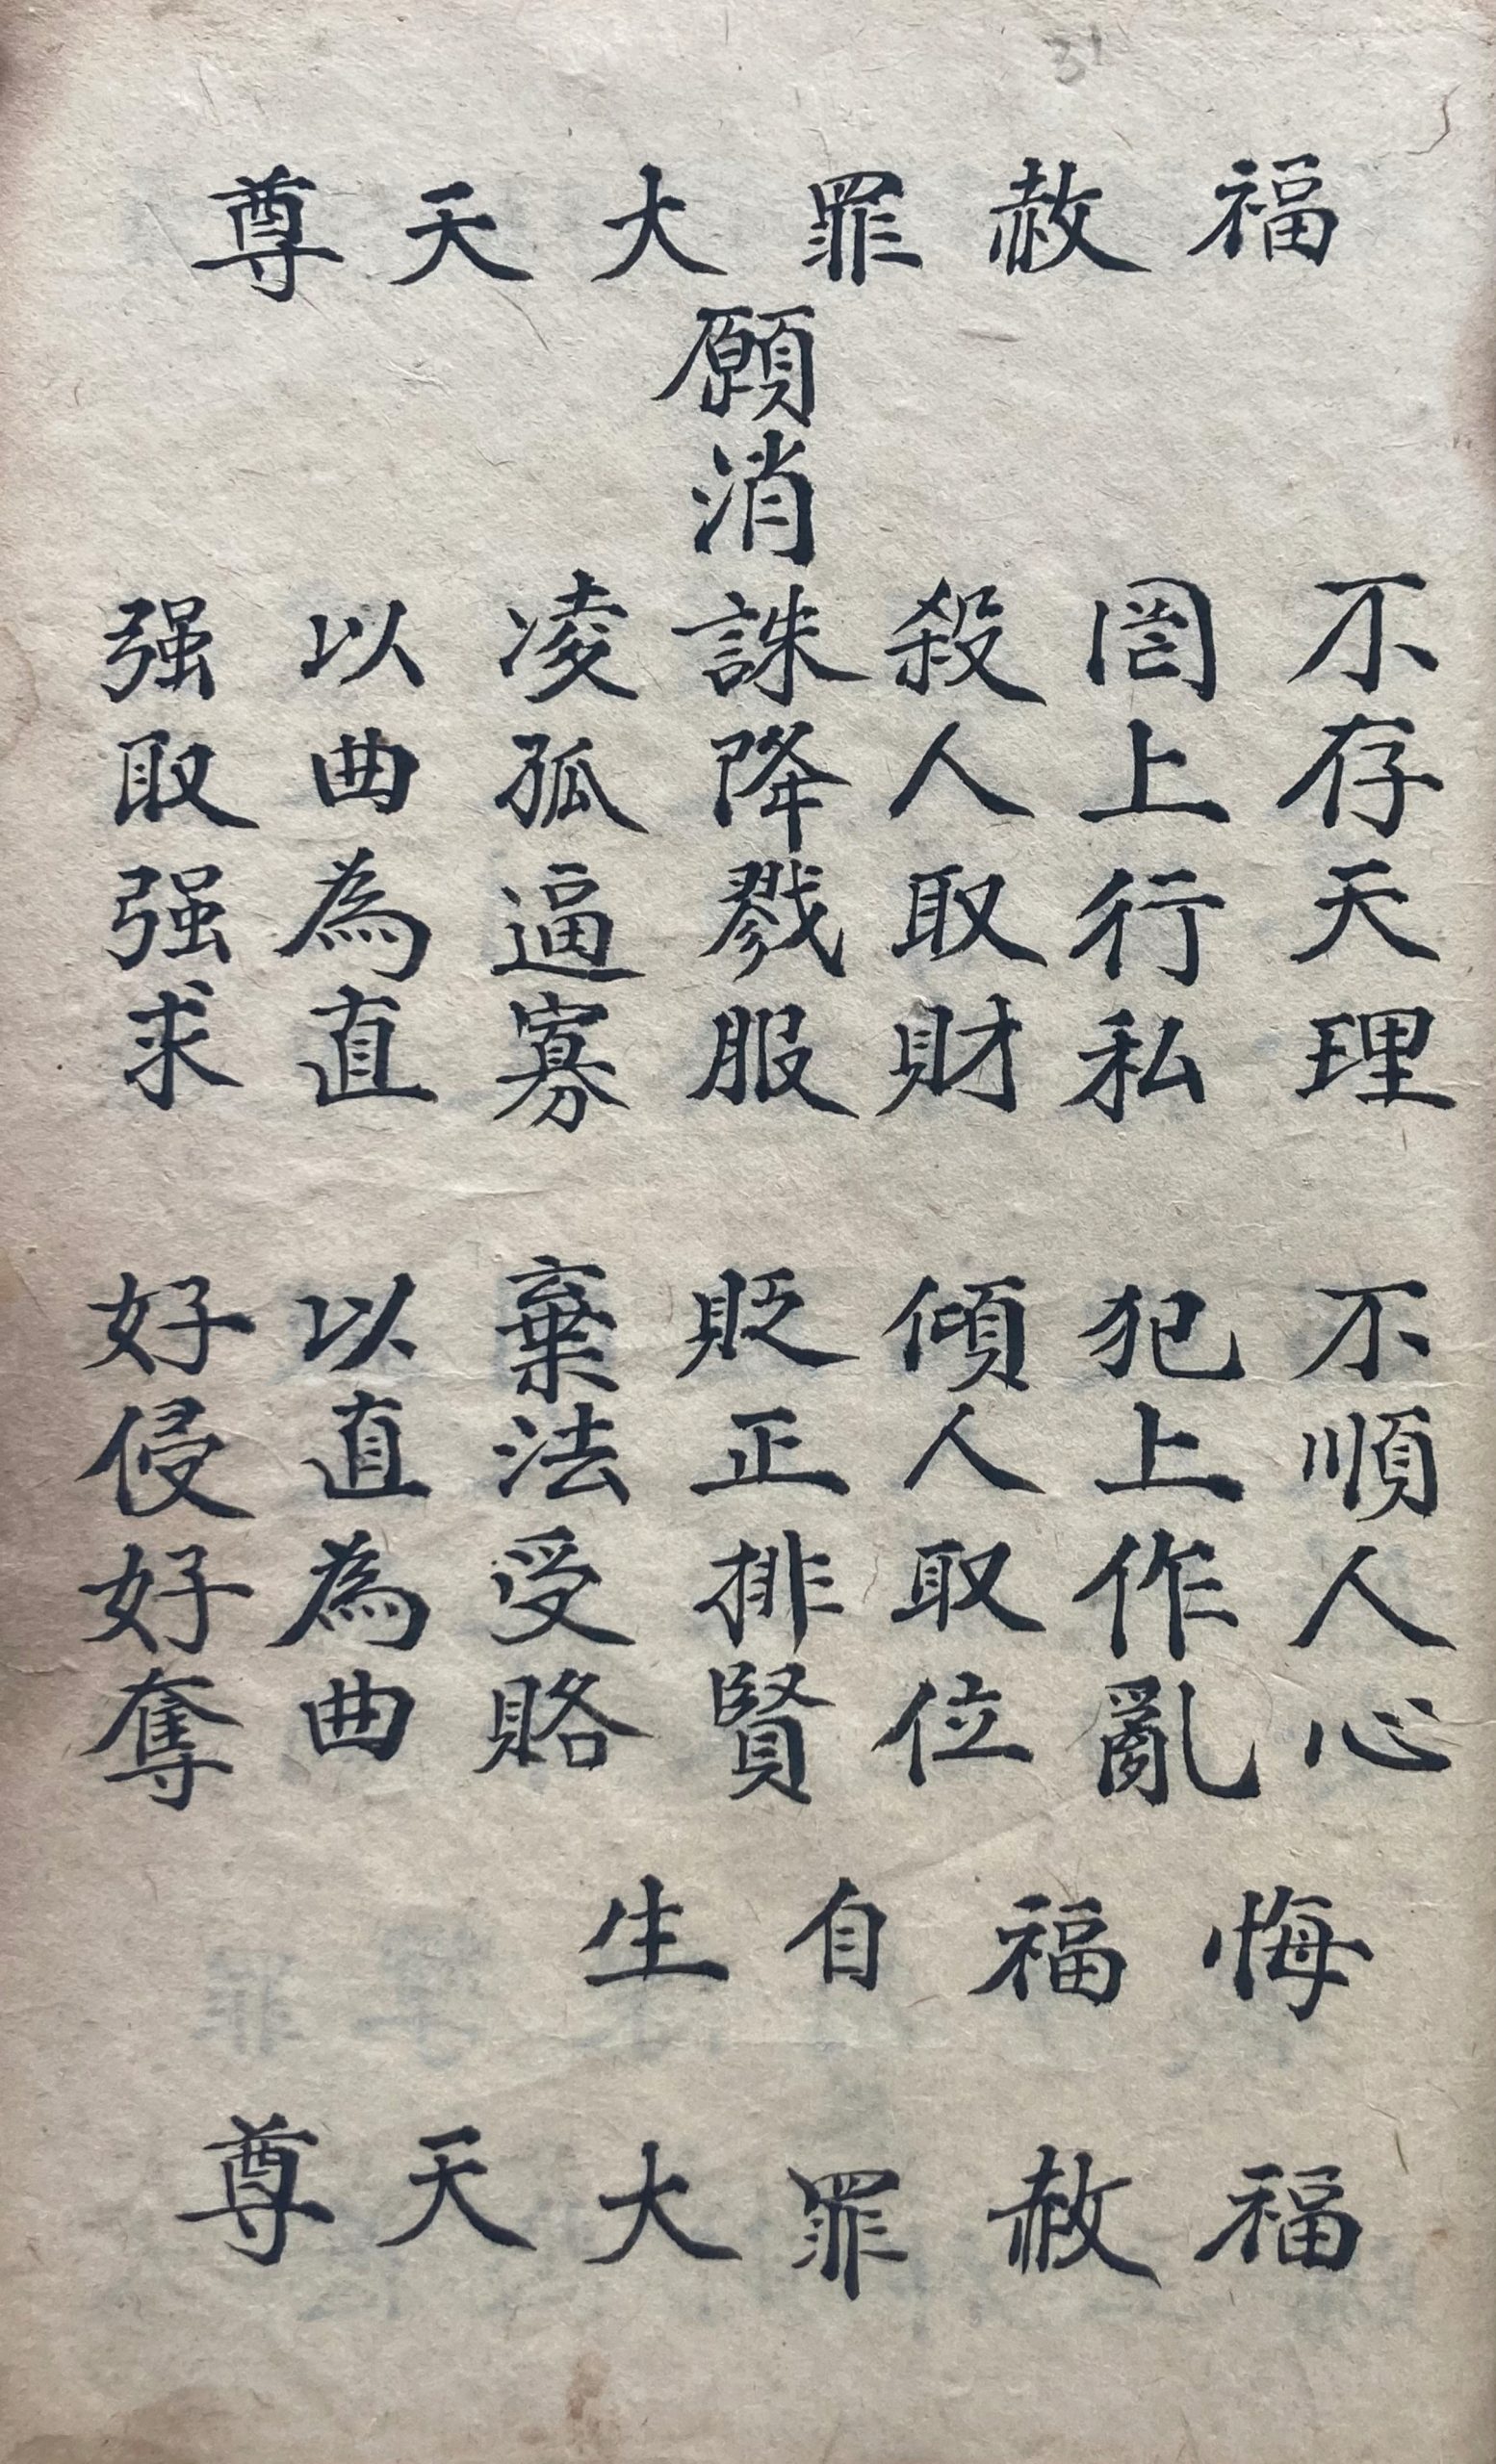 31
福赦罪大天尊
願消
不存天理
罔上行私
殺人取財
誅降戮服
凌孤逼寡
以曲為直
强取强求
不順人心
犯上作亂
傾人取位
貶正排賢
棄法受賂
以直為曲
好侵好奪
悔福自生
福赦罪大天尊